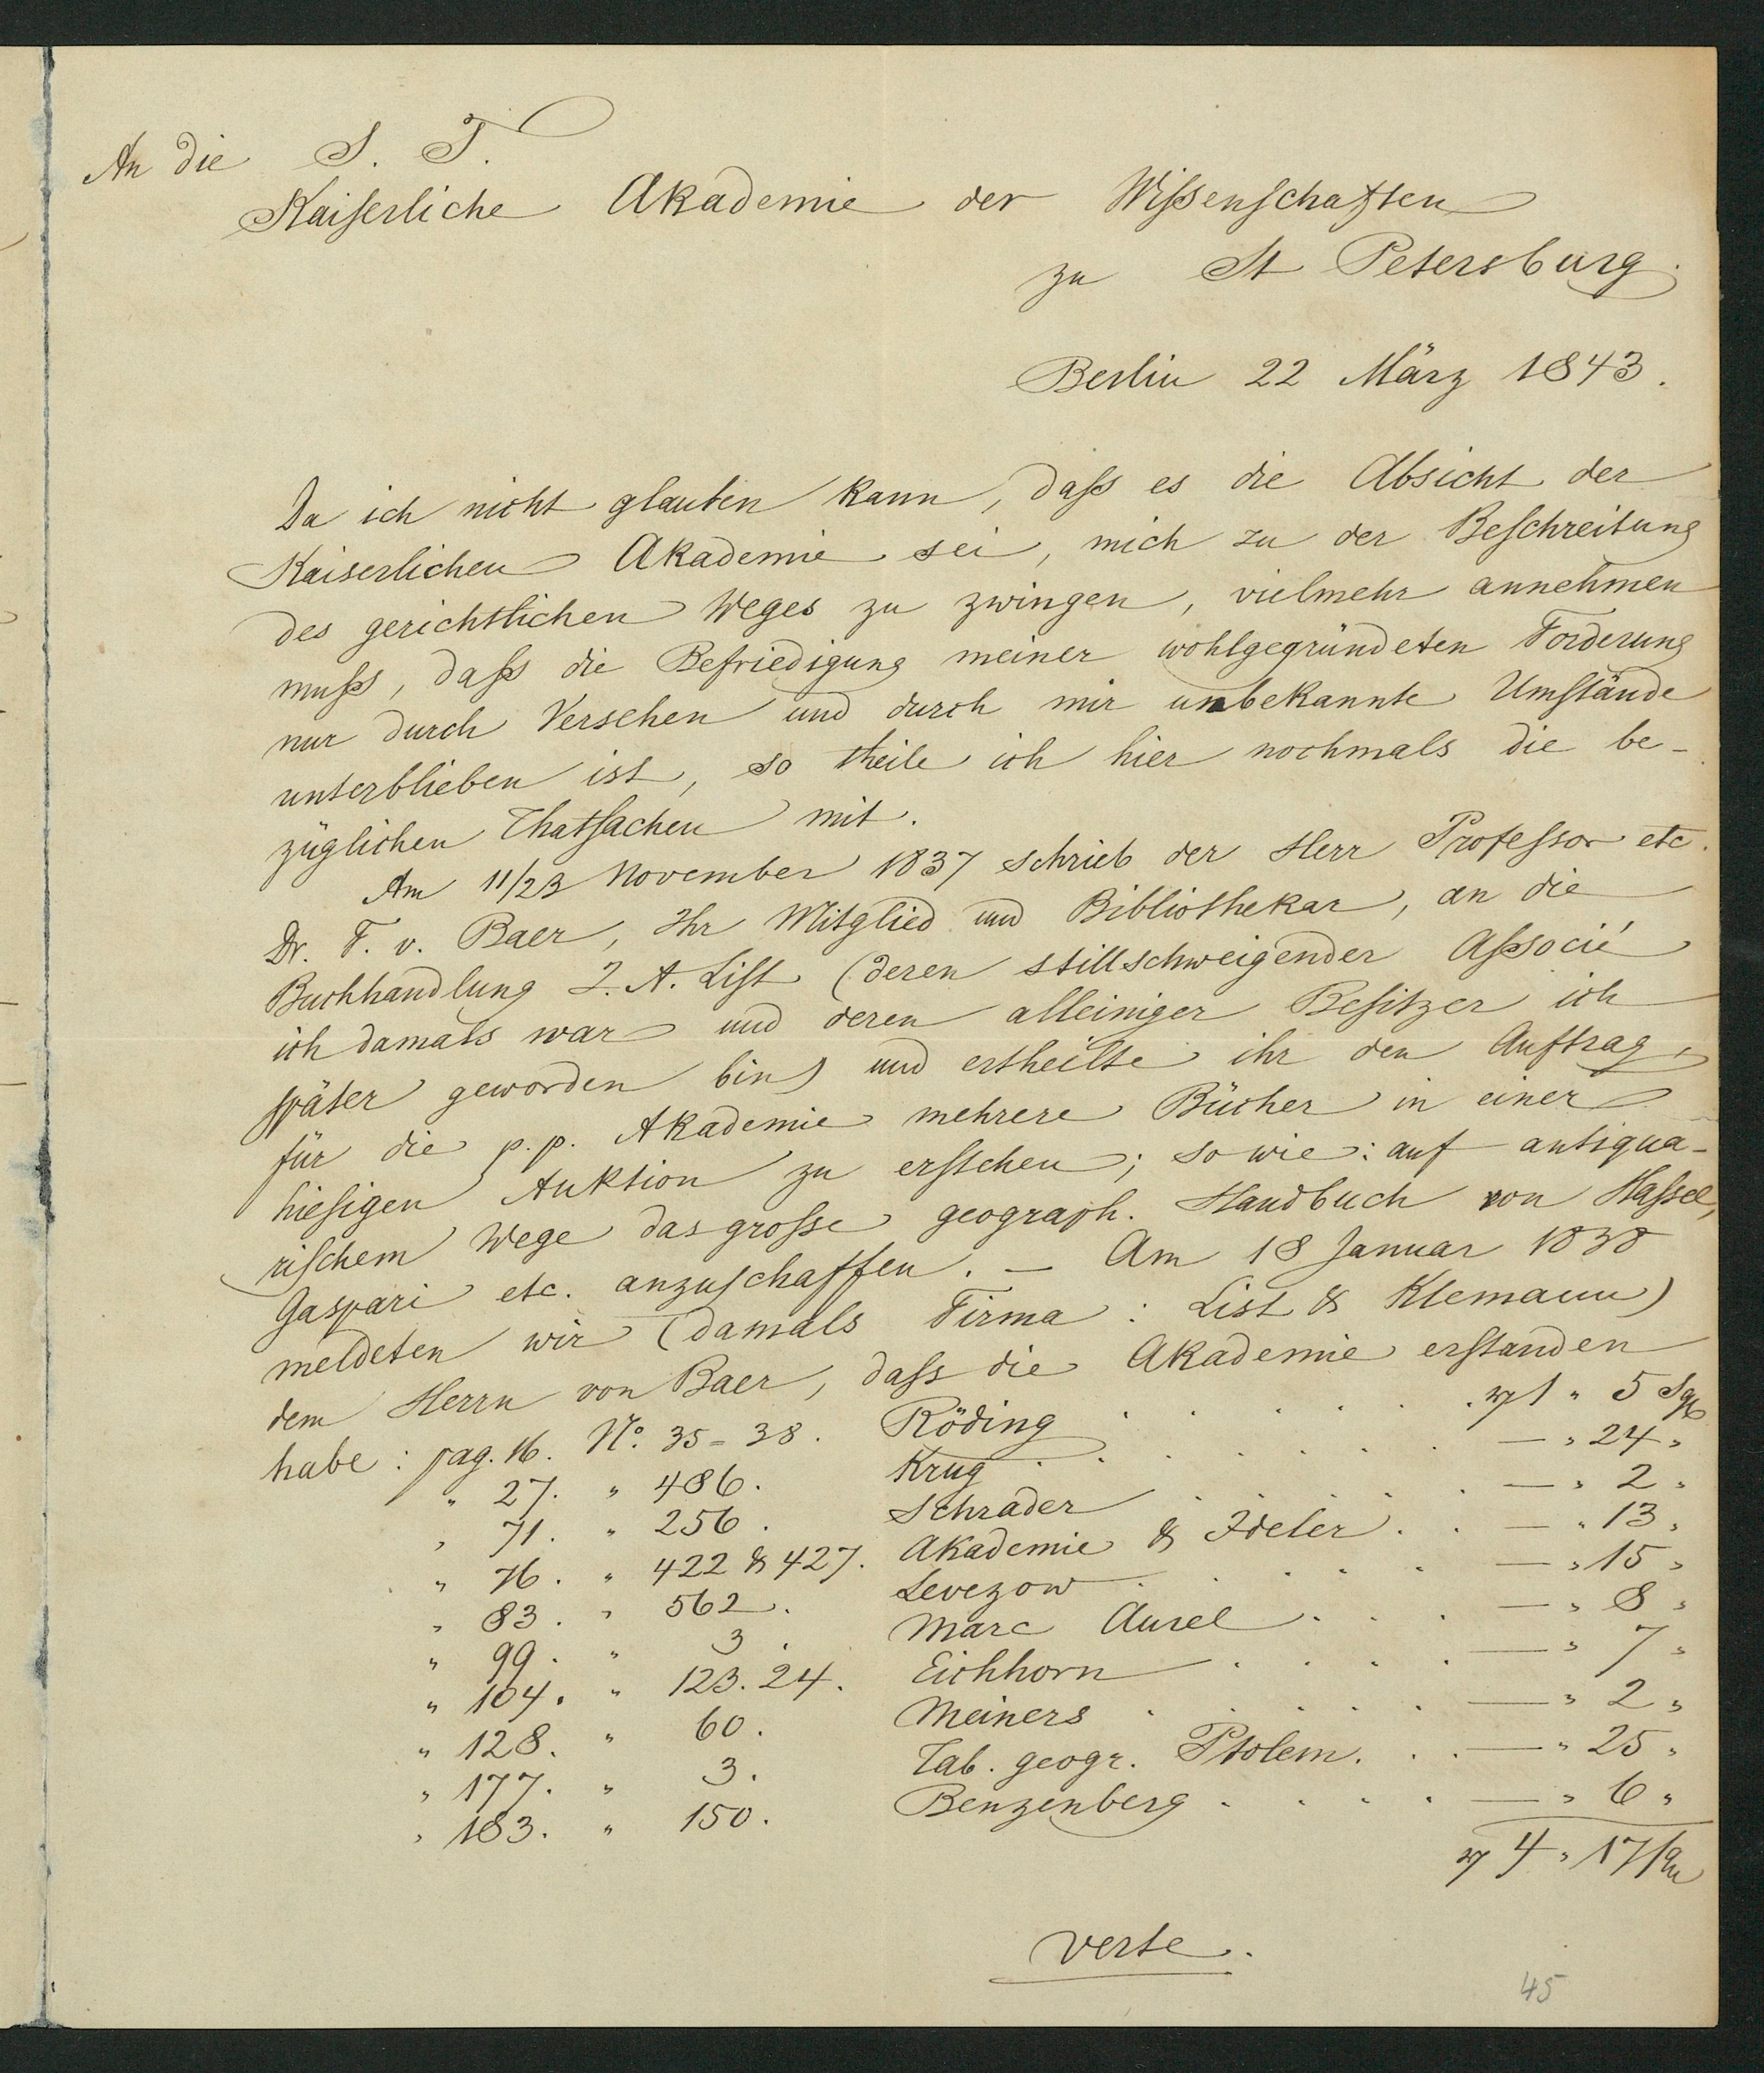 An die S. T.
Kaiserliche Akademie der Wissenschaften
zu St Petersburg.
Berlin 22 März 1843.
Da ich nicht glauben kann, dass es die Absicht der
Kaiserlichen Akademie sei, mich zu der Beschreitung
des gerichtlichen Weges zu zwingen, vielmehr annehmen
muss, dass die Befriedigung meiner wohlgegründeten Forderung
nur durch Versehen und durch mir unbekannte Umstände
unterblieben ist, so theile ich hier nochmals die be-
züglichen Thatsachen mit.
Am 11/23 November 1837 schrieb der Herr Professor etc.
Dr. F. v. Baer, Ihr Mitglied und Bibliothekar, an die
Buchhandlung J. A. List (deren stillschweigender Associé
ich damals war und deren alleiniger Besitzer ich
später geworden bin) und ertheilte ihr den Auftrag,
für die p. p. Akademie mehrere Bücher in einer
hiesigen Auktion zu erstehen; so wie: auf antiqua-
rischem Wege das grosse geograph. Handbuch von Hassel,
Gaspari etc. anzuschaffen. — Am 18 Januar 1838
meldeten wir (damals Firma: List & Klemann)
dem Herrn von Baer, dass die Akademie erstanden
habe: pag. 16. No. 35=38. Röding . . . . . . 1 " 5 Sgr
" 27. " 486. Krug . . . . . . — " 24 "
" 71. " 256. Schrader . . . . . — " 2 "
" 76. " 422 & 427. Akademie & Ideler . . — " 13 "
" 83. " 562. Levezow . . . . . — " 15 "
" 99. " 3. Marc Aurel . . . — " 8 "
" 104. " 123. 24. Eichhorn . . . . — " 7 "
" 128. " 60. Meiners . . . . . — " 2 "
" 177. " 3. Tab. geogr. Ptolem. . . — " 25 "
" 183. " 150. Benzenberg . . . . — " 6 "
4 " 17
verte.
45